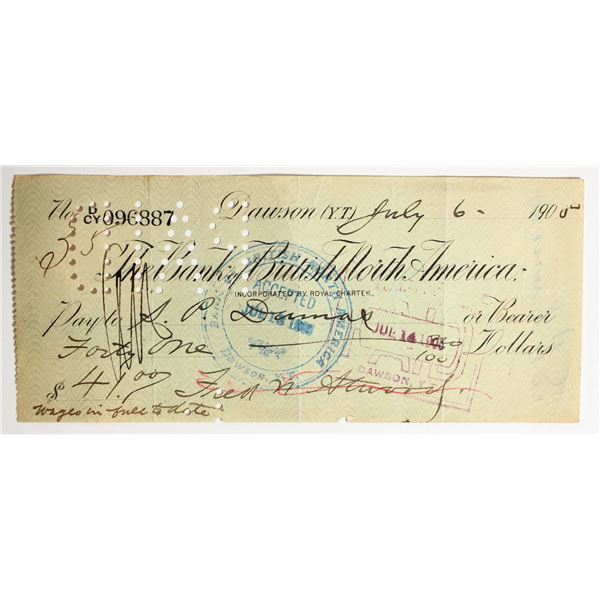 No. D/CY 096887 Dawson (Y.T.) July 6 - 1905
35
The Bank of British North America.
INCORPORATED BY ROYAL CHARTER.
Pay to S. P. Dumas or Bearer
Forty One 00/100 Dollars
$ 41.00 Fred N. Atwood
wages in full to date
BANK OF BRITISH NORTH AMERICA
ACCEPTED
JUL 14 1905
DAWSON, Y.T.
JUL 14 1905
DAWSON, Y.T.